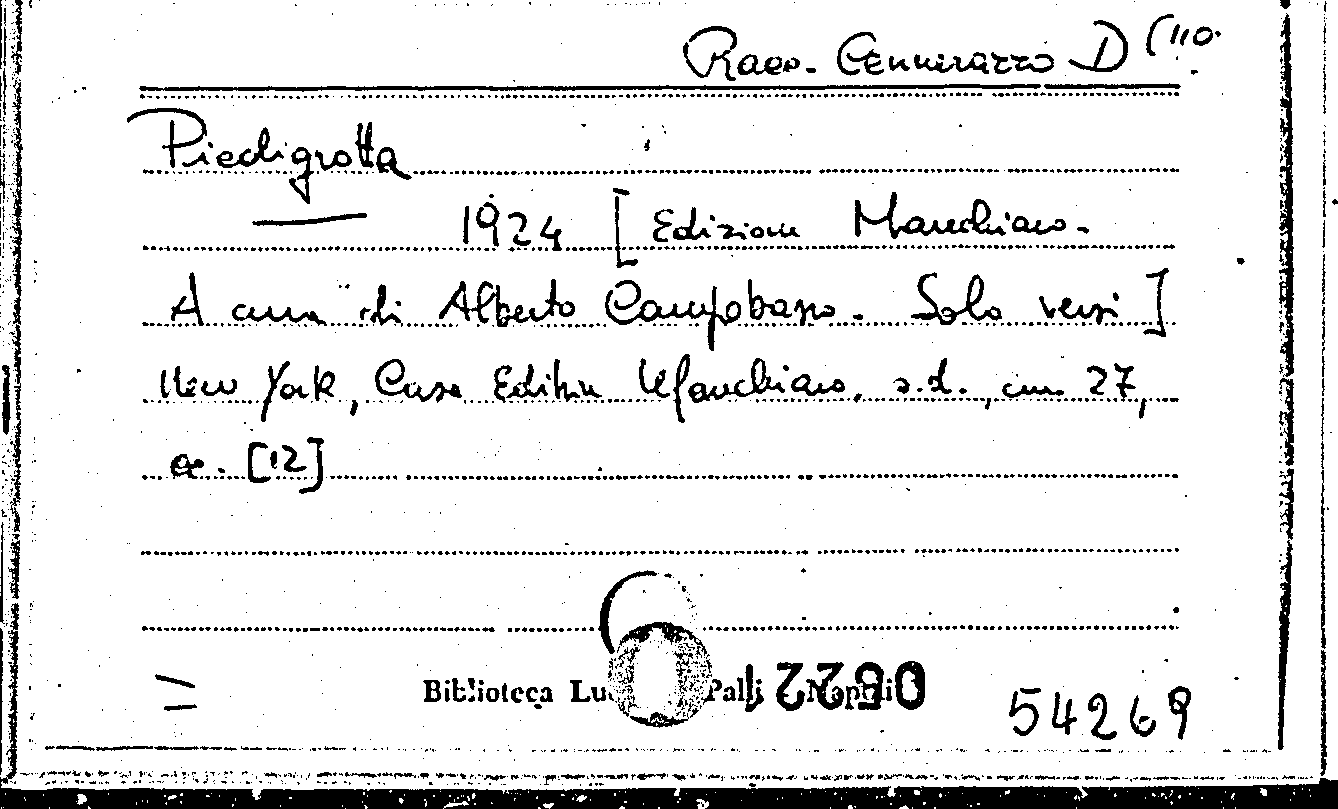 Racc. Gennarazzo D (110.
Piedigrotta
— 1924 [Edizione Marechiaro.
A cura di Alberto Campobasso. Solo versi]
New York, Casa Editrice Marechiaro, s.d., cm. 27,
cc. [12]
Biblioteca Lu Palli Napoli
54269